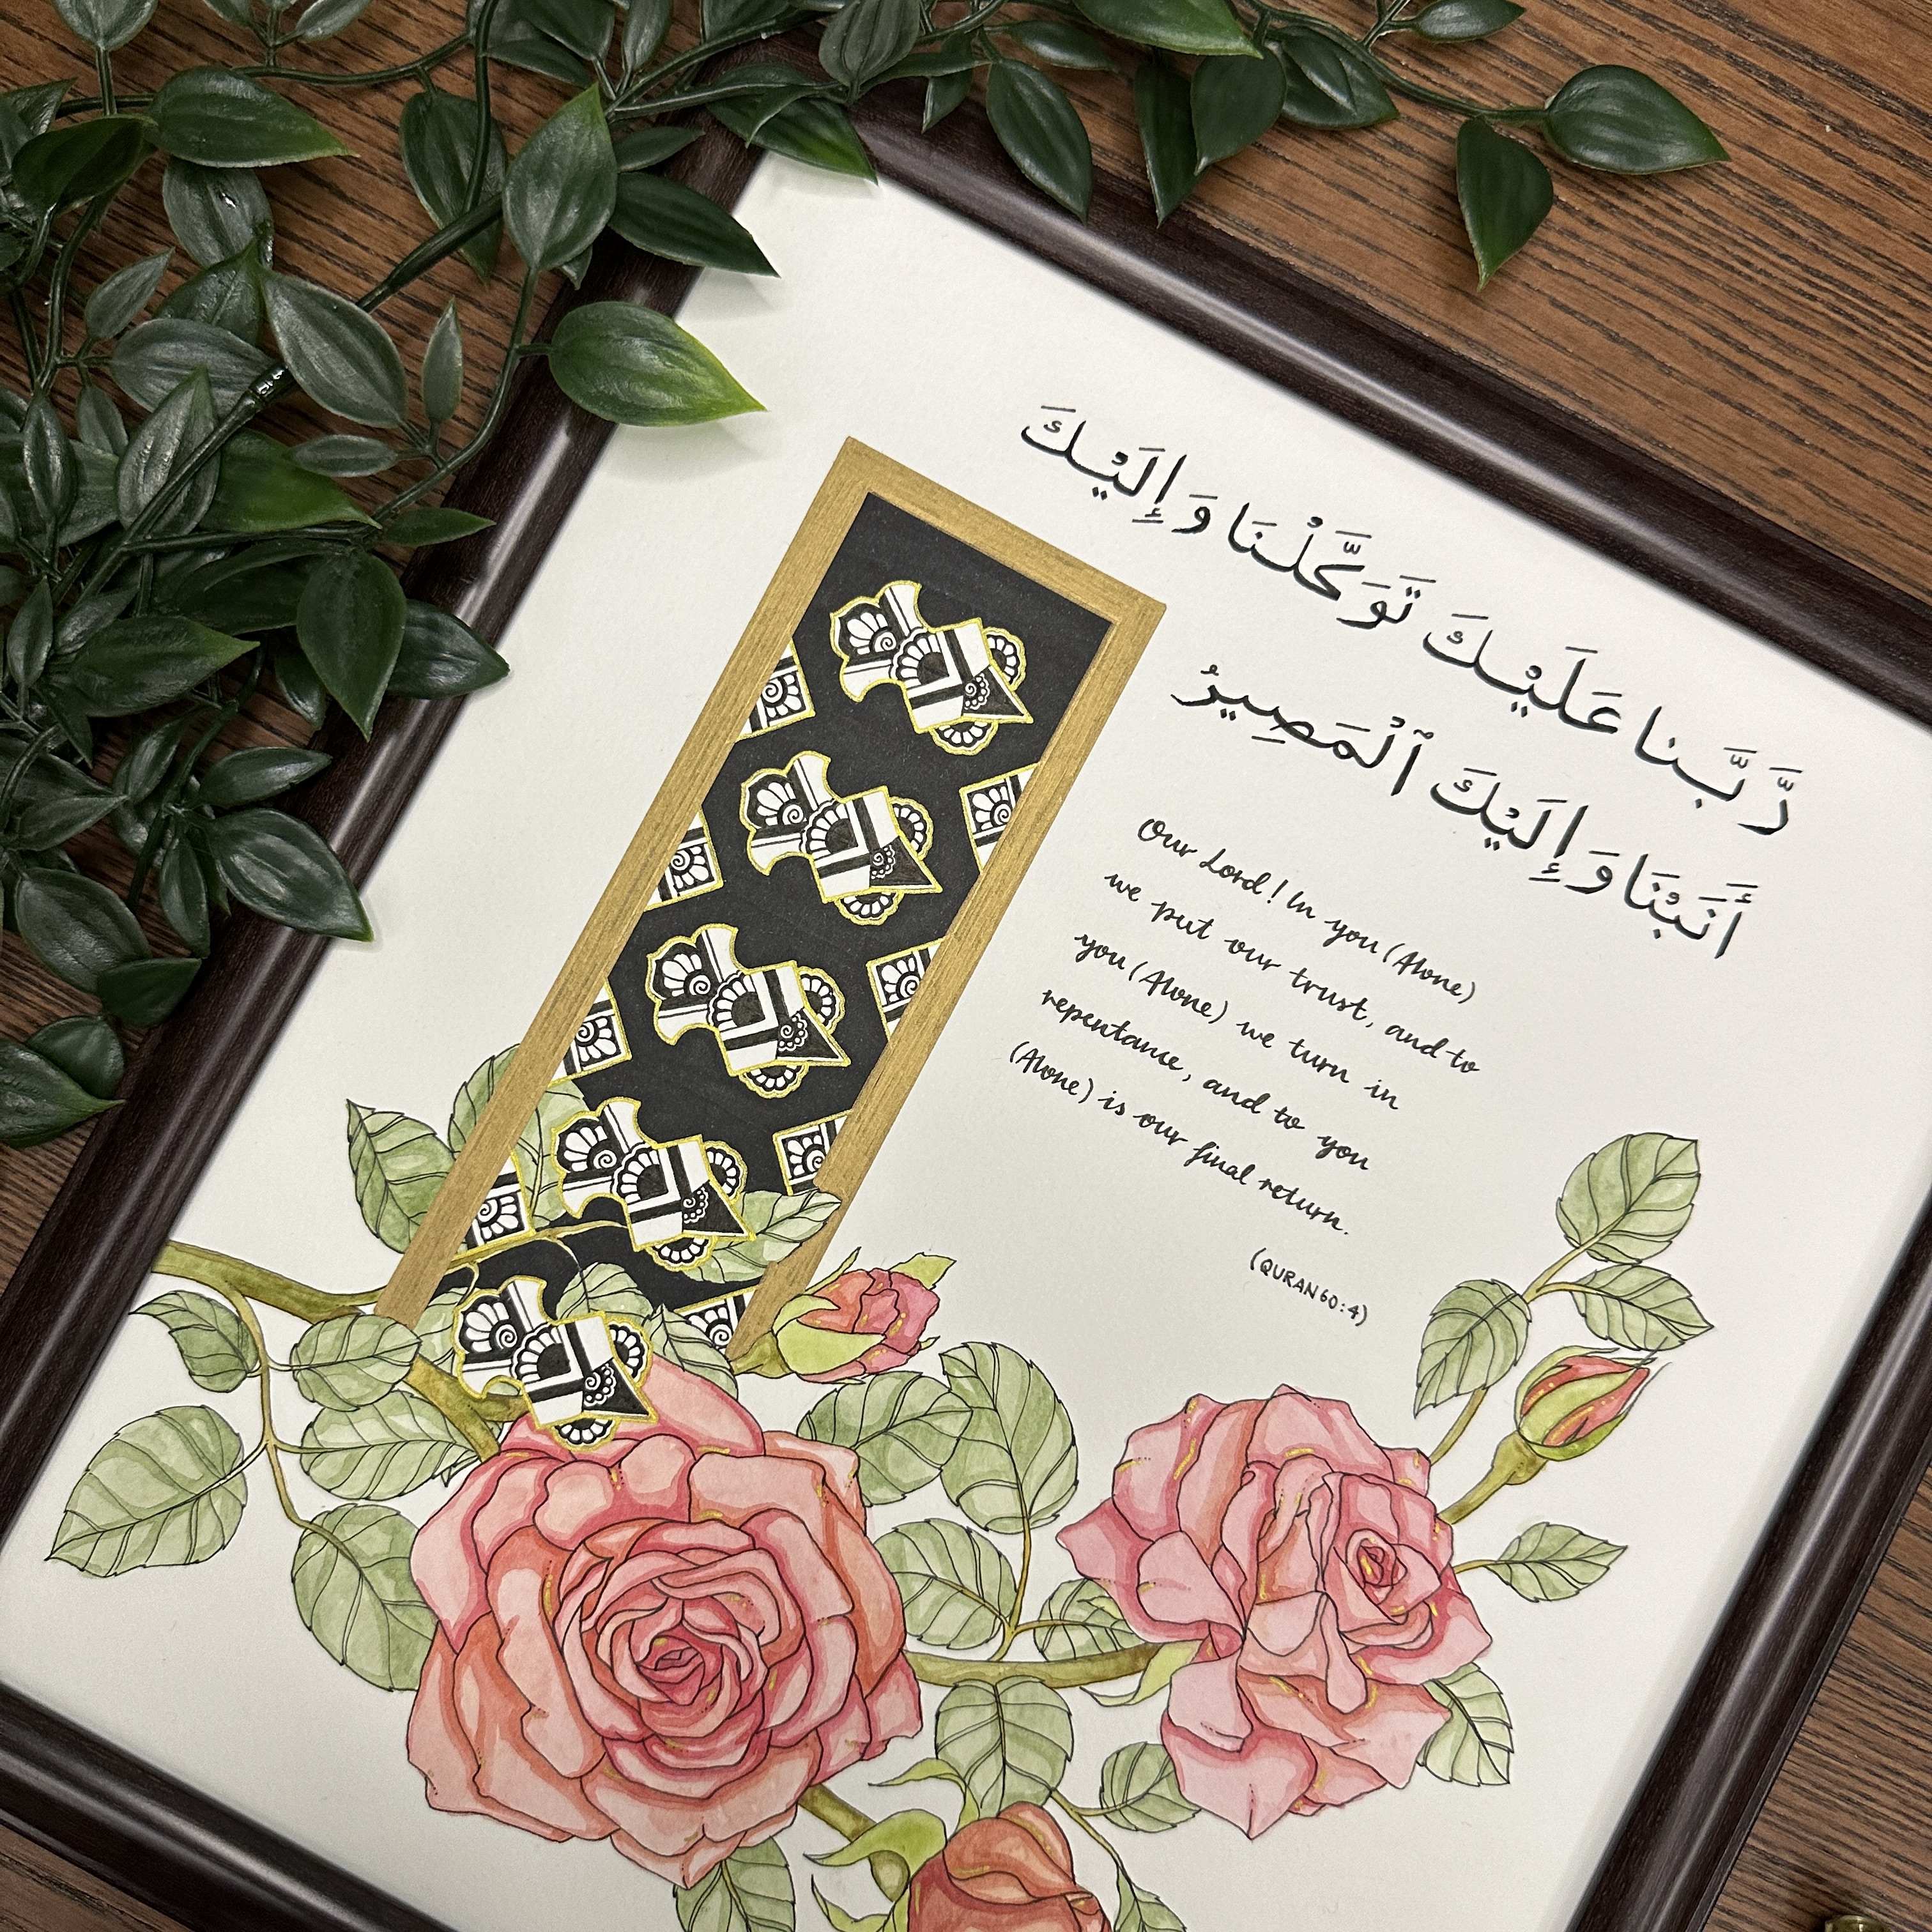 رَّبَّنَا عَلَيْكَ تَوَكَّلْنَا وَإِلَيْكَ
أَنَبْنَا وَإِلَيْكَ ٱلْمَصِيرُ
Our Lord! In you (Alone)
we put our trust, and to
you (Alone) we turn in
repentance, and to you
(Alone) is our final return.
(QURAN 60:4)